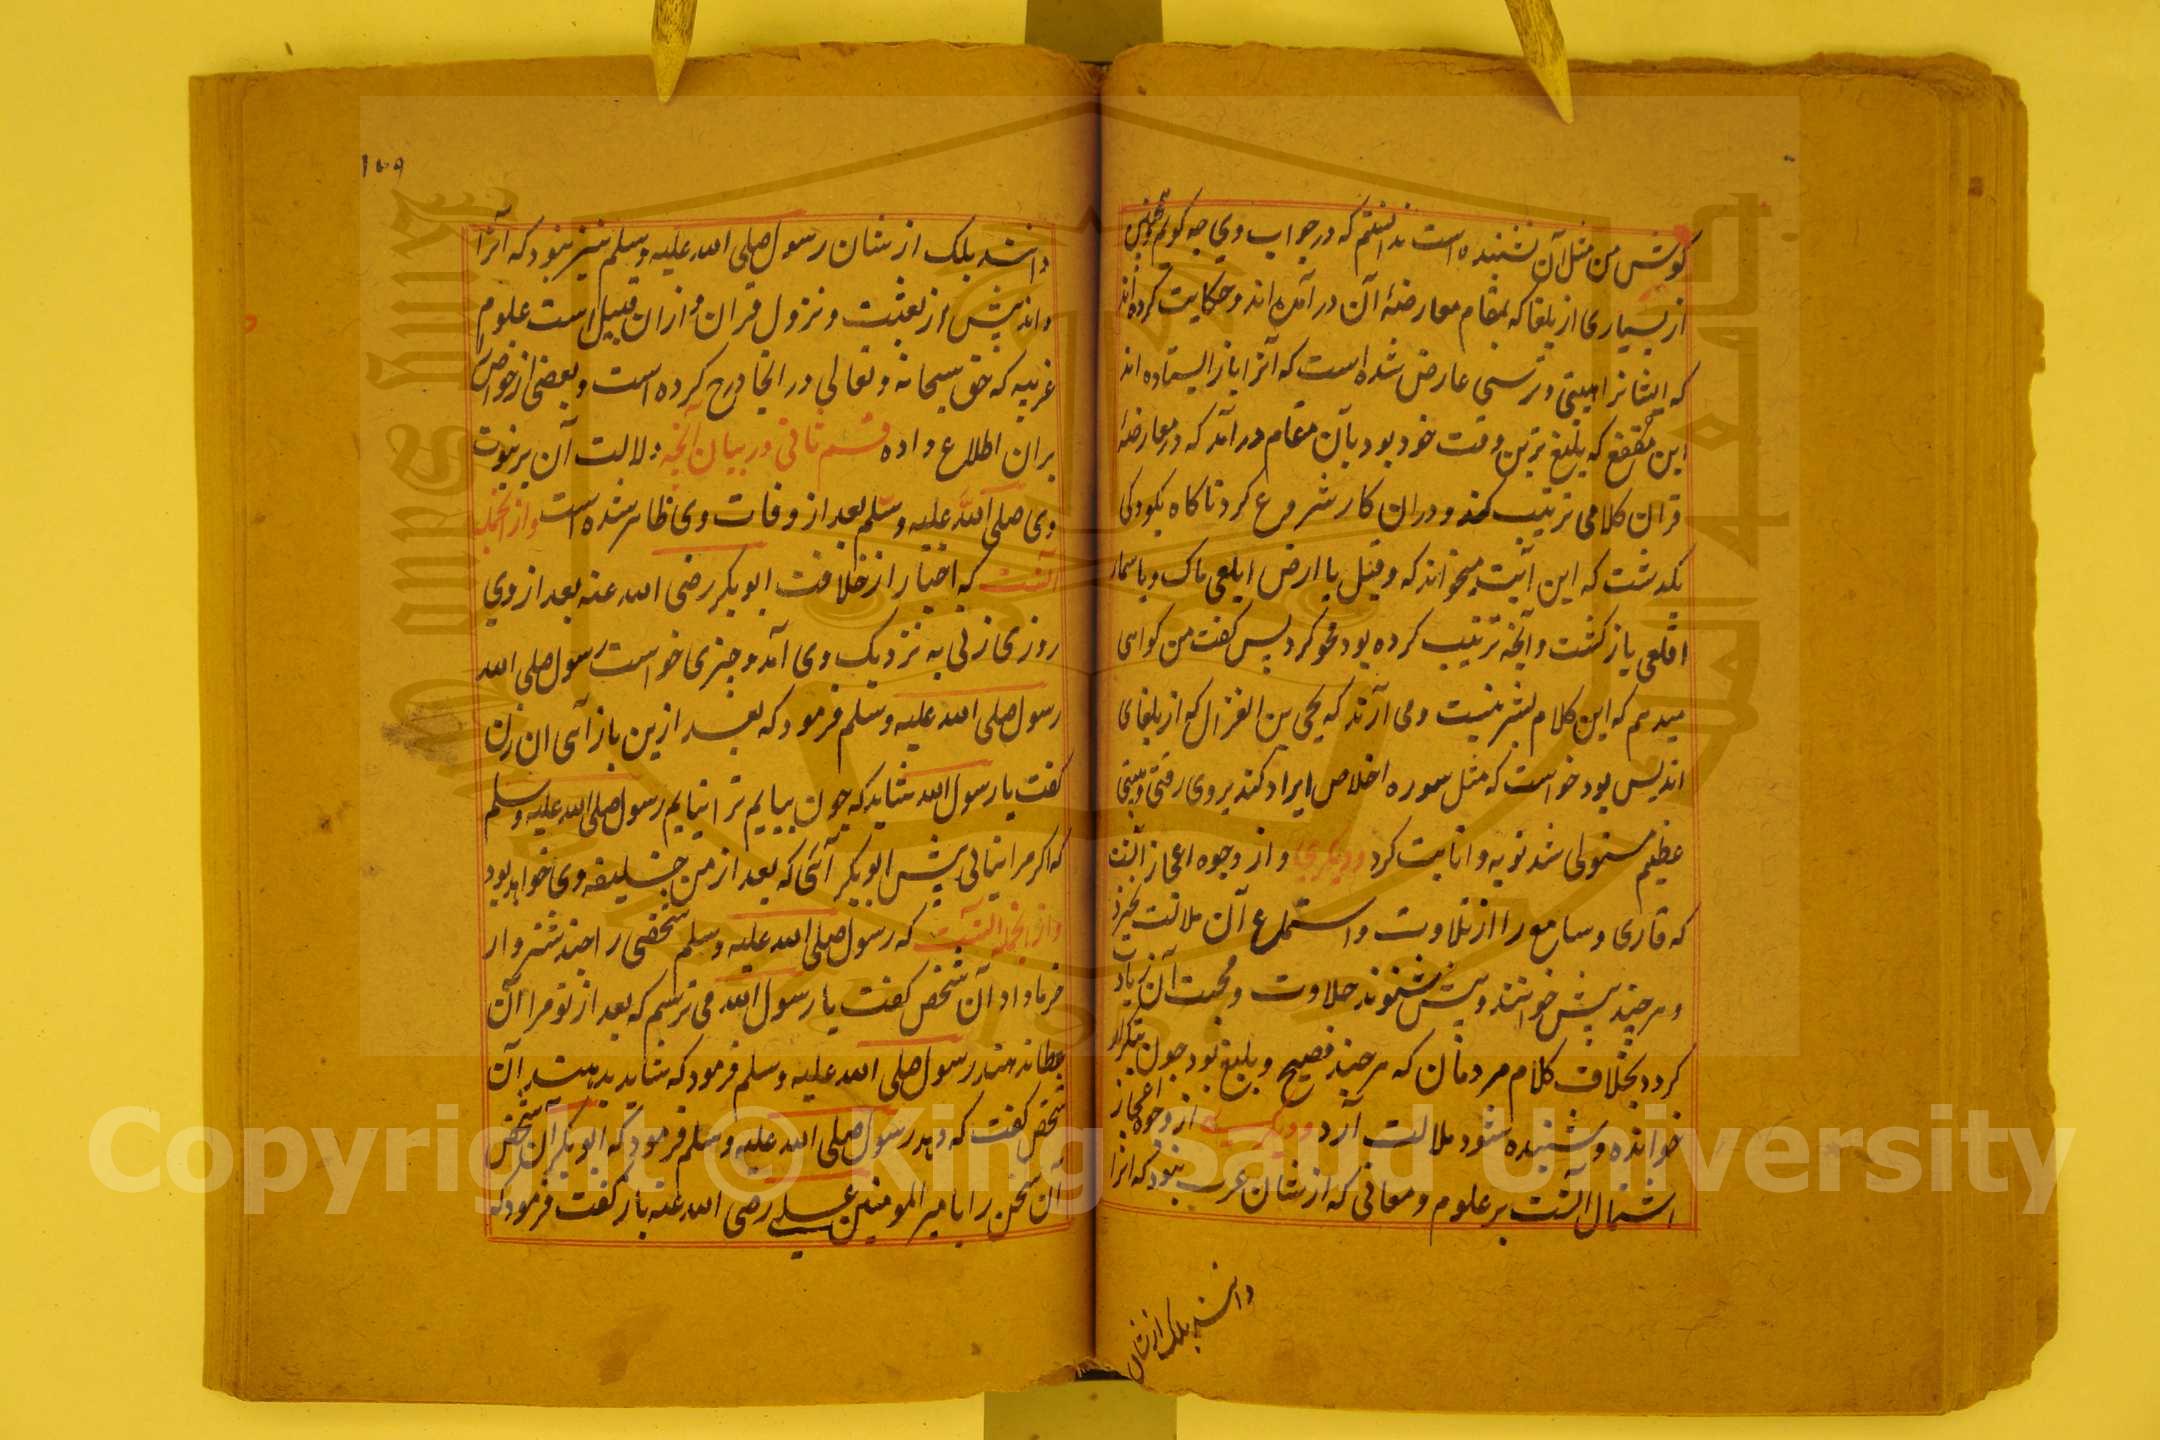 کوش من مثل آن نشنیده است ندانستم که در جواب وی چه کویم و همچنین
از بسیاری از بلغا که بمقام معارضهٔ آن در آمده اند و حکایت کرده اند
که ایشانرا هیبتی و ترسی عارض شده است که آنرا باز ایستاده اند
ابن مقفع که بلیغ ترین وقت خود بود بآن مقام در آمد که در معارضهٔ
قران کلامی ترتیب کند و دران کار شروع کرد ناکاه بکودکی
بکذشت که این آیت میخواند که وقیل یا ارض ابلعی ماک و یا سمار
اقلعی باز کشت و آنچه ترتیب کرده بود محو کرد پس کفت من کواهی
میدهم که این کلام بشر نیست و می آرند که یحیی بن الغزال که از بلغای
اندلس بود خواست که مثل سوره اخلاص ایراد کند بر وی رقتی و هیبتی
عظیم مستولی شد توبه و انابت کرد ودیکری از وجوه اعجاز آنست
که قاری و سامع را از تلاوت و استماع آن ملالت نخیزد
و هر چند بیش خوانند و بیش شنوند حلاوت و محبت آن زیادت
کردد بخلاف کلام مردمان که هر چند فصیح و بلیغ بود چون بتکرار
خوانده و شنیده شود ملالت آرد ودیکر از وجوه اعجاز
اشتمال آنست بر علوم و معانی که از شان عرب نبود که انرا
دانند بلک از شان
۱۵۹
دانند بلک از شان رسول صلی الله علیه وسلم نیز نبود که آنرا
داند پیش از بعثت و نزول قران و ازان قبیل است علوم
غریبه که حق سبحانه و تعالی در انجا درج کرده است و بعضی از خواص را
بران اطلاع داده قسم ثانی در بیان آنچه دلالت آن بر نبوت
وی صلی الله علیه وسلم بعد از وفات وی ظاهر شده است و از انجمله
آنست که اخبار از خلافت ابو بکر رضی الله عنه بعد از وی
روزی زنی به نزدیک وی آمد و چیزی خواست رسول صلی الله
رسول صلی الله علیه وسلم فرمود که بعد ازین باز آی ان زن
کفت یا رسول الله شاید که چون بیایم ترا نیابم رسول صلی الله علیه وسلم
که اکر مرا نیابی پیش ابو بکر آئی که بعد از من خلیفه وی خواهد بود
واز انجمله آنست که رسول صلی الله علیه وسلم شخصی را چند شتر وار
خرما داد آن شخص کفت یا رسول الله می ترسم که بعد از تو مرا آن
عطا ندهند رسول صلی الله علیه وسلم فرمود که شاید بدهند ان
شخص کفت که دهد رسول صلی الله علیه وسلم فرمود که ابو بکر آن شخص
آن سخن را با میر المومنین علی رضی الله عنه باز کفت فرمود که
Copyright © King Saud University